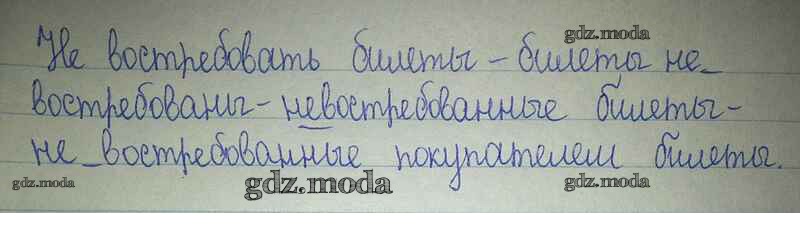 gdz.moda
Не востребовать билеты – билеты не_
gdz.moda
востребованы – невостребованные билеты –
gdz.moda
не_востребованные покупателем билеты.
gdz.moda gdz.moda gdz.moda